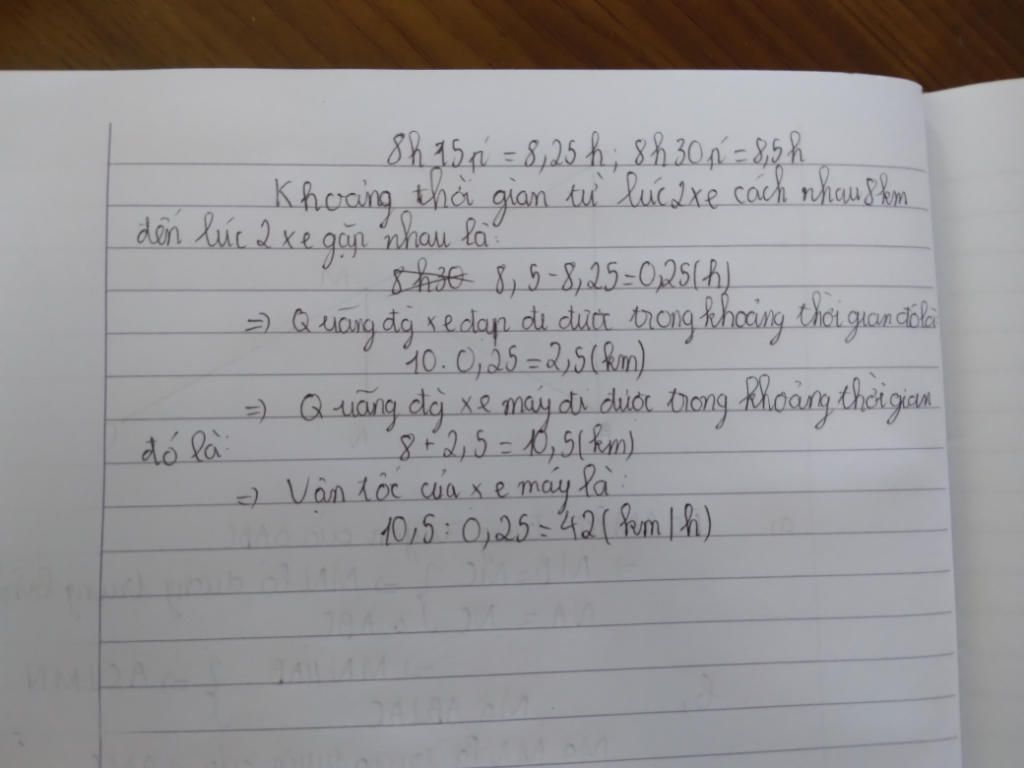 8h15p' = 8,25h; 8h30p' = 8,5h
Khoảng thời gian từ lúc 2 xe cách nhau 8km
đến lúc 2 xe gặp nhau là:
8h30 8,5 - 8,25 = 0,25(h)
=> Quãng đg xe đạp đi được trong khoảng thời gian đó là
10. 0,25 = 2,5(km)
=> Quãng đg xe máy đi được trong khoảng thời gian
đó là: 8 + 2,5 = 10,5(km)
=> Vận tốc của xe máy là:
10,5 : 0,25 = 42(km/h)